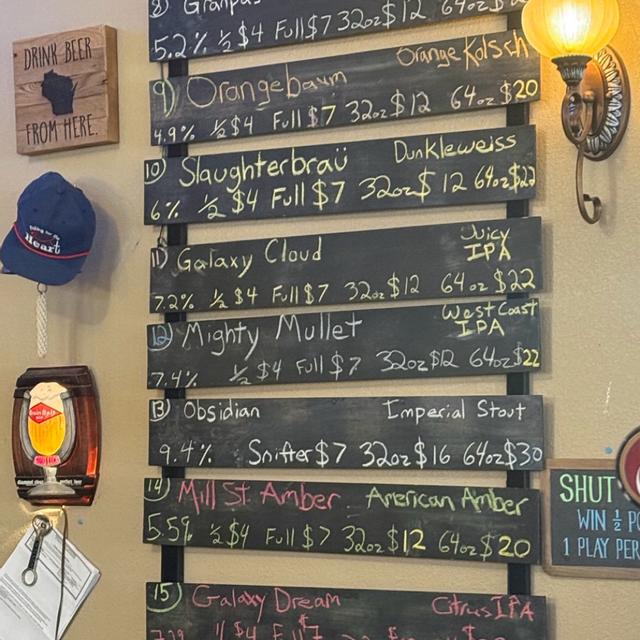 DRINK BEER
FROM HERE.
Heart
8) Granpas
5.2% ½ $4 Full $7 32oz $12 64oz
9) Orangebaum Orange Kolsch
4.9% ½ $4 Full $7 32oz $12 64oz $20
10) Slaughterbraü Dunkleweiss
6% ½ $4 Full $7 32oz $12 64oz $22
11) Galaxy Cloud Juicy IPA
7.2% ½ $4 Full $7 32oz $12 64oz $22
12) Mighty Mullet West Coast IPA
7.4% ½ $4 Full $7 32oz $12 64oz $22
13) Obsidian Imperial Stout
9.4% Snifter $7 32oz $16 64oz $30
14) Mill St. Amber American Amber
5.5% ½ $4 Full $7 32oz $12 64oz $20
15) Galaxy Dream Citrus IPA
½ $4 Full $7
SHUT
WIN ½ PO
1 PLAY PER